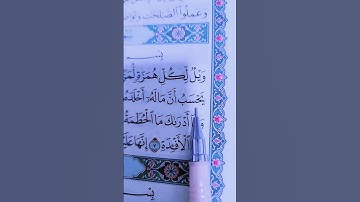 وَعَمِلُوا۟ ٱلصَّٰلِحَٰتِ وَتَوَاصَ
بِسْمِ
وَيْلٌ لِّكُلِّ هُمَزَةٍ لُّمَزَ
يَحْسَبُ أَنَّ مَالَهُۥٓ أَخْلَدَهُ
أَدْرَىٰكَ مَا ٱلْحُطَمَةُ
ٱلْأَفْـِٔدَةِ ۝٧ إِنَّهَا عَلَيْ
بِسْ